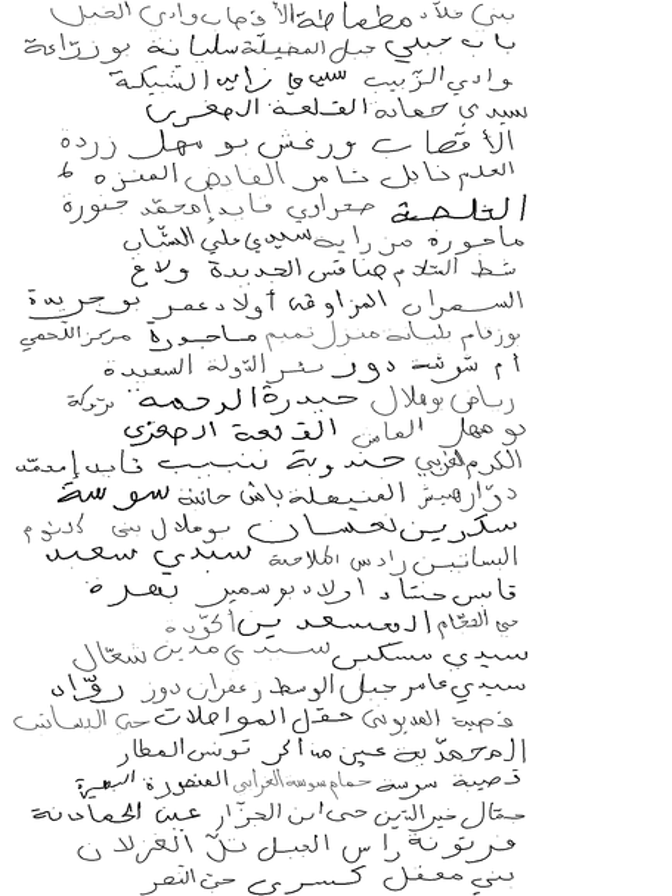 بني فلاد مطماطة الأقصاب وادي الخيل
باب جبلي جبل المخيلة سليانة بوزراعة
وادي الزبيب الشبيكة
سيدي حمادة القلعة الصغرى
الأقصاب ورغش بو مهل زردة
نابل المنزه ٦
صحراوي قايد إمحمد خنورة
ماجورة سيدي علي الشباب
شط السلام صفاقس الجديدة ولاغ
السمران المزاوقة أولاد عمر بوجريدة
بوزقام بلبانة منزل تميم ماجورة مركز اللجمي
أم شوشة دوز بئر الدولة السعيدة
رياض بوهلال حيدرة الرحمة
بو مهل القلعة الصغرى
الكرم الغربي جندوبة قايد إمحمد
دوار هيشر المنيهلة باش حانبة سوسة
سكرين نعسان بوهلال بني كلثوم
البساتين رادس الملاحة سيدي سعيد
قابس شتاد أولاد بوسمير
المسعدين أكودة
سيدي مسكين سيدي مدين شعال
سيدي عامر جبل الوسط زعفران دوز رواد
قصيبة المديوني حي البساتين
المحمدية عين تونس
قصيبة سوسة حمام سوسة الغرابي المنصورة
خير الدين حي ابن الجزار عين الحمادنة
فرتونة رأس الجبل تل الغزلان
بني معقل كسرى حي النصر